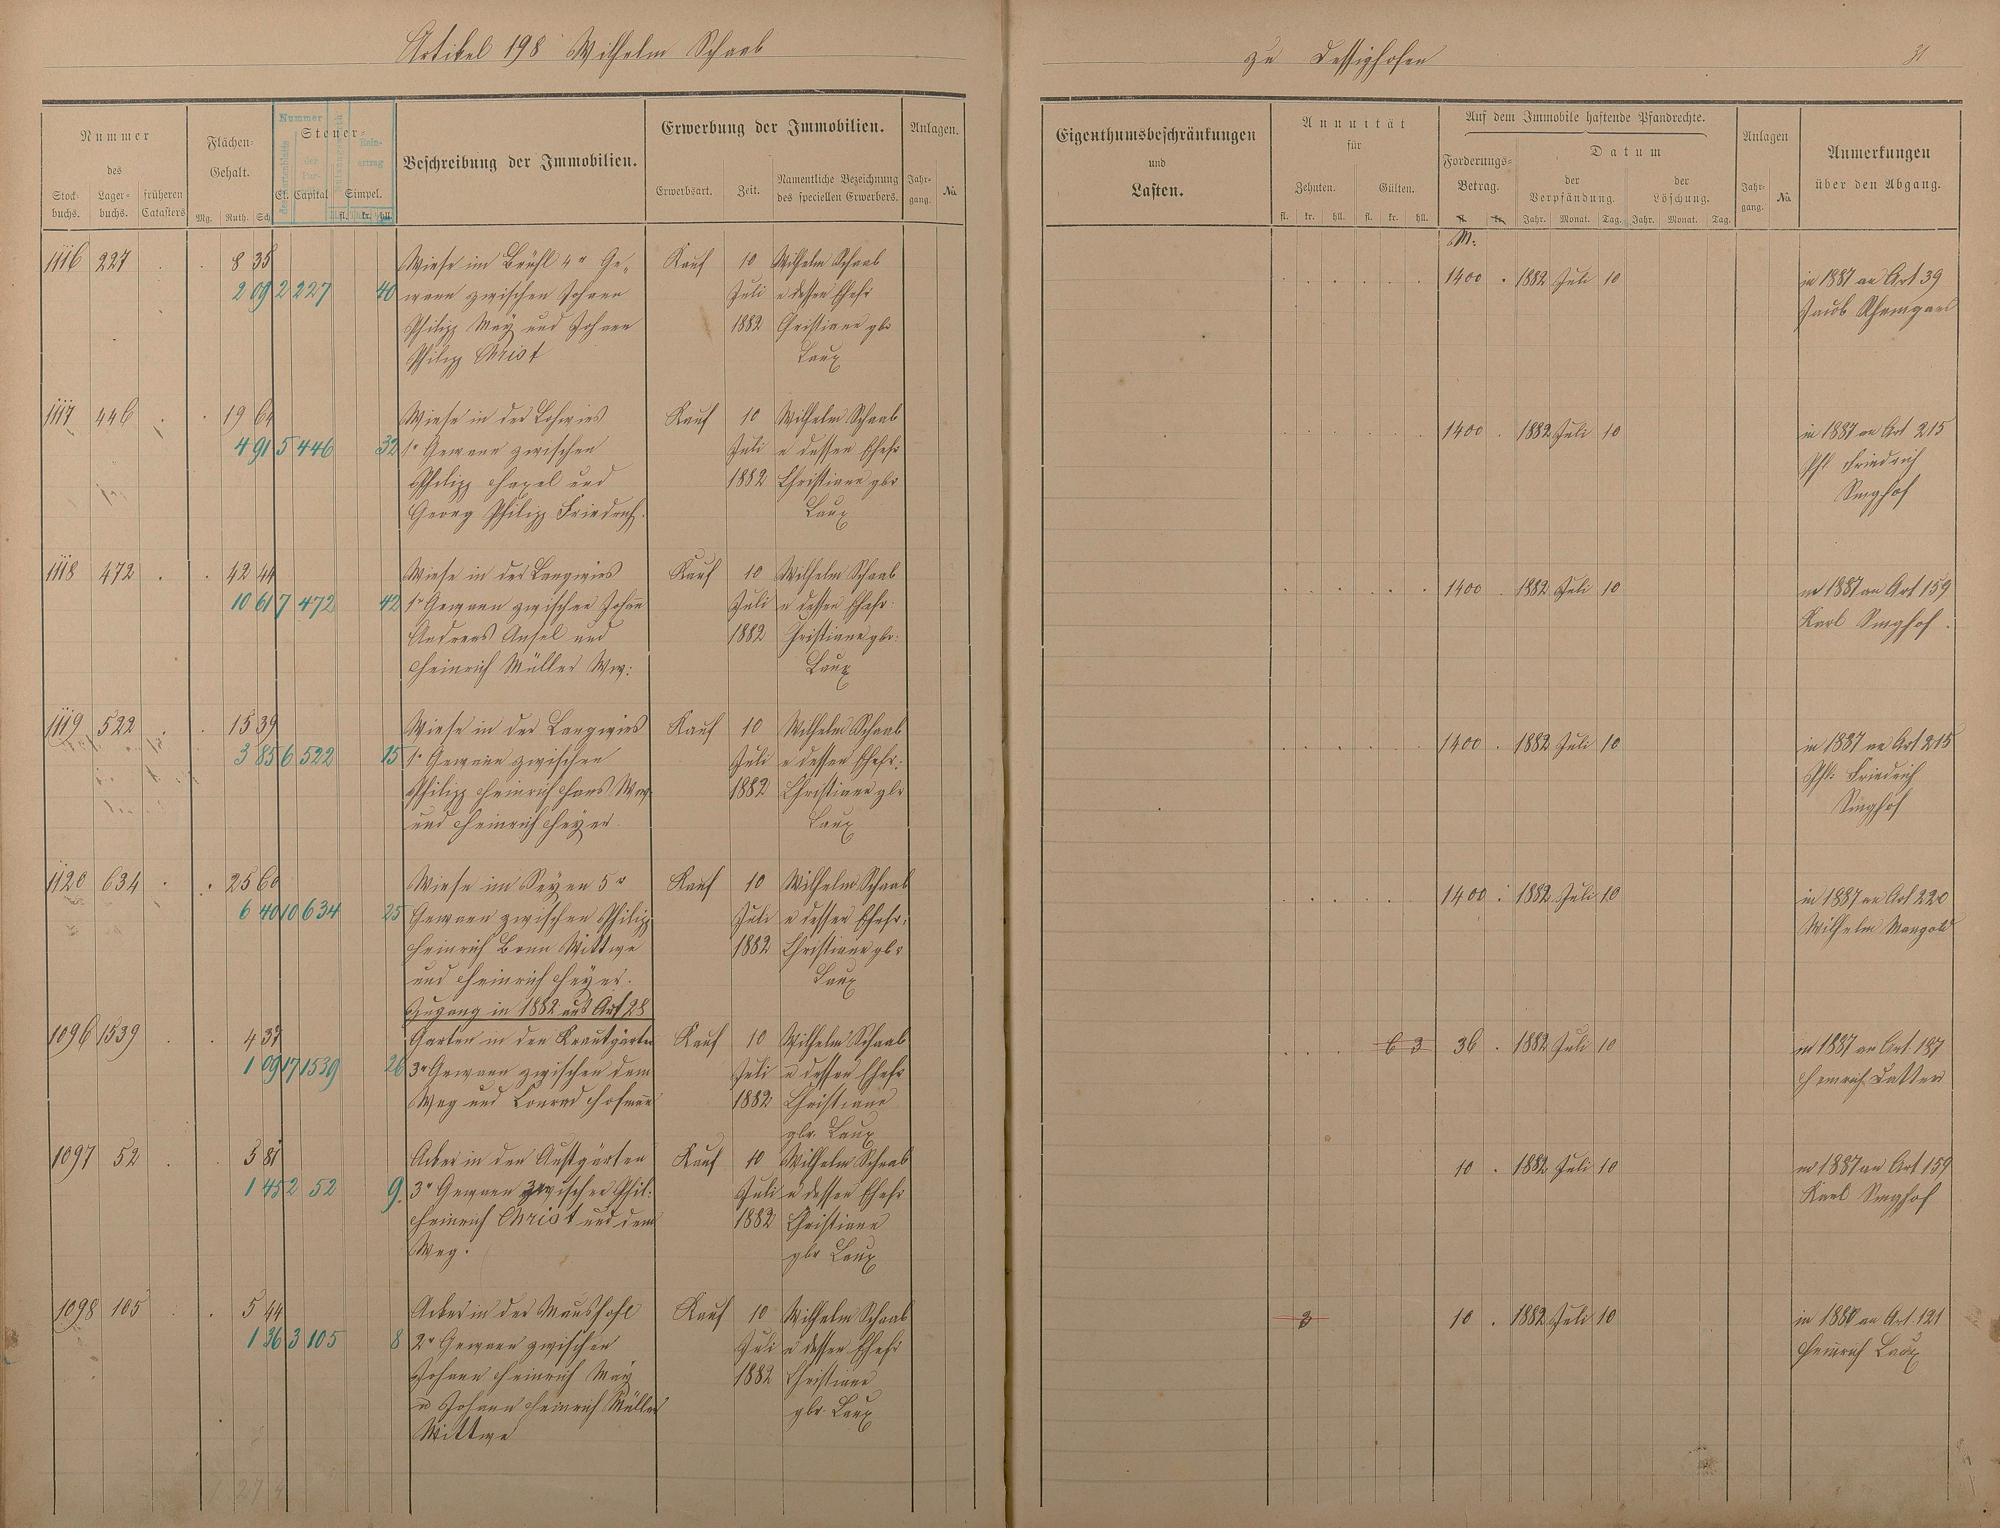 Artikel 198 Wilhelm Schaab
zu Dessighofen
31
Nummer
des
Stock-
buchs.
Lager-
buchs.
früheren
Catasters
Flächen-
Gehalt.
Mg. Ruth. Sch.
Nummer
Steuer-
Cl. Capital
Simpel.
fl. kr. hll.
Beschreibung der Immobilien.
Erwerbung der Immobilien.
Erwerbsart. Zeit.
Namentliche Bezeichnung
des speciellen Erwerbers.
Anlagen.
Jahr-
gang.
No.
Eigenthumsbeschränkungen
und
Lasten.
Annuität
für
Zehnten. Gülten.
fl. kr. hll. fl. kr. hll.
Auf dem Immobile haftende Pfandrechte.
Forderungs-
Betrag.
Datum
der
Verpfändung.
Jahr. Monat. Tag.
der
Löschung.
Jahr. Monat. Tag.
Anlagen
Jahr-
gang.
No.
Anmerkungen
über den Abgang.
M.
1116 227 8 35 Wiese im Brühl 4r Ge- Kauf 10 Wilhelm Schaab
2 09 2 227 40 wann zwischen Johann Juli u dessen Ehefr
Philipp May und Johann 1882 Christiane gbr
Philipp Christ Laux
1400 1882 Juli 10 in 1887 an Art 39
Jacob
1117 446 19 64 Wiese in der Lohwies Kauf 10 Wilhelm Schaab
4 91 5 446 32 1r Gewann zwischen Juli u dessen Ehefr
Philipp und 1882 Christiane gbr
Georg Philipp Friedrich. Laux
1400 1882 Juli 10 in 1887 an Art 215
Phl Friedrich
Singhof
1118 472 42 44 Wiese in der Langwies Kauf 10 Wilhelm Schaab
10 61 7 472 42 1r Gewann zwischen Johann Juli u dessen Ehefr.
Andreas Ansel und 1882 Christiane gbr.
Heinrich Müller Ww: Laux
1400 1882 Juli 10 in 1887 an Art 159
Karl Singhof.
1119 522 15 39 Wiese in der Langwies Kauf 10 Wilhelm Schaab
3 85 6 522 15 1r Gewann zwischen Juli u dessen Ehefr.
Philipp Heinrich Ww. 1882 Christiane gbr
und Heinrich Heyer. Laux
1400 1882 Juli 10 in 1887 an Art 215
Phl. Friedrich
Singhof
1120 634 25 60 Wiese im Seyen 5r Kauf 10 Wilhelm Schaab
6 40 10 634 25 Gewann zwischen Philipp Juli u dessen Ehefr.
Heinrich Bonn Wittwe 1882 Christiane gbr
und Heinrich Heyer. Laux
1400 1882 Juli 10 in 1887 an Art 220
Wilhelm Mangold
Zugang in 1882 aus Art 28
1096 1539 4 37 Garten in den Krautgärten Kauf 10 Wilhelm Schaab
1 09 17 1539 26 3r Gewann zwischen dem Juli u dessen Ehefr
Weg und Conrad Hofmann 1882 Christiane
gbr. Laux
6 3 36 1882 Juli 10 in 1887 an Art. 187
Heinrich Latter
1097 52 5 81 Acker in den Kauf 10 Wilhelm Schaab
1 45 2 52 9. 3r Gewann zwischen Phil: Juli u dessen Ehefr
Heinrich Christ und dem 1882 Christiane
Weg. gbr Laux
10 1882 Juli 10 in 1887 an Art 159
Karl Singhof
1098 105 5 44 Acker in der Maushohl Kauf 10 Wilhelm Schaab
1 36 3 105 8 2r Gewann zwischen Juli u dessen Ehefr
Johann Heinrich May 1882 Christiane
u Johann Heinrich Müller gbr. Laux
Wittwe
3 10 1882 Juli 10 in 1880 an Art. 121
Heinrich Laux